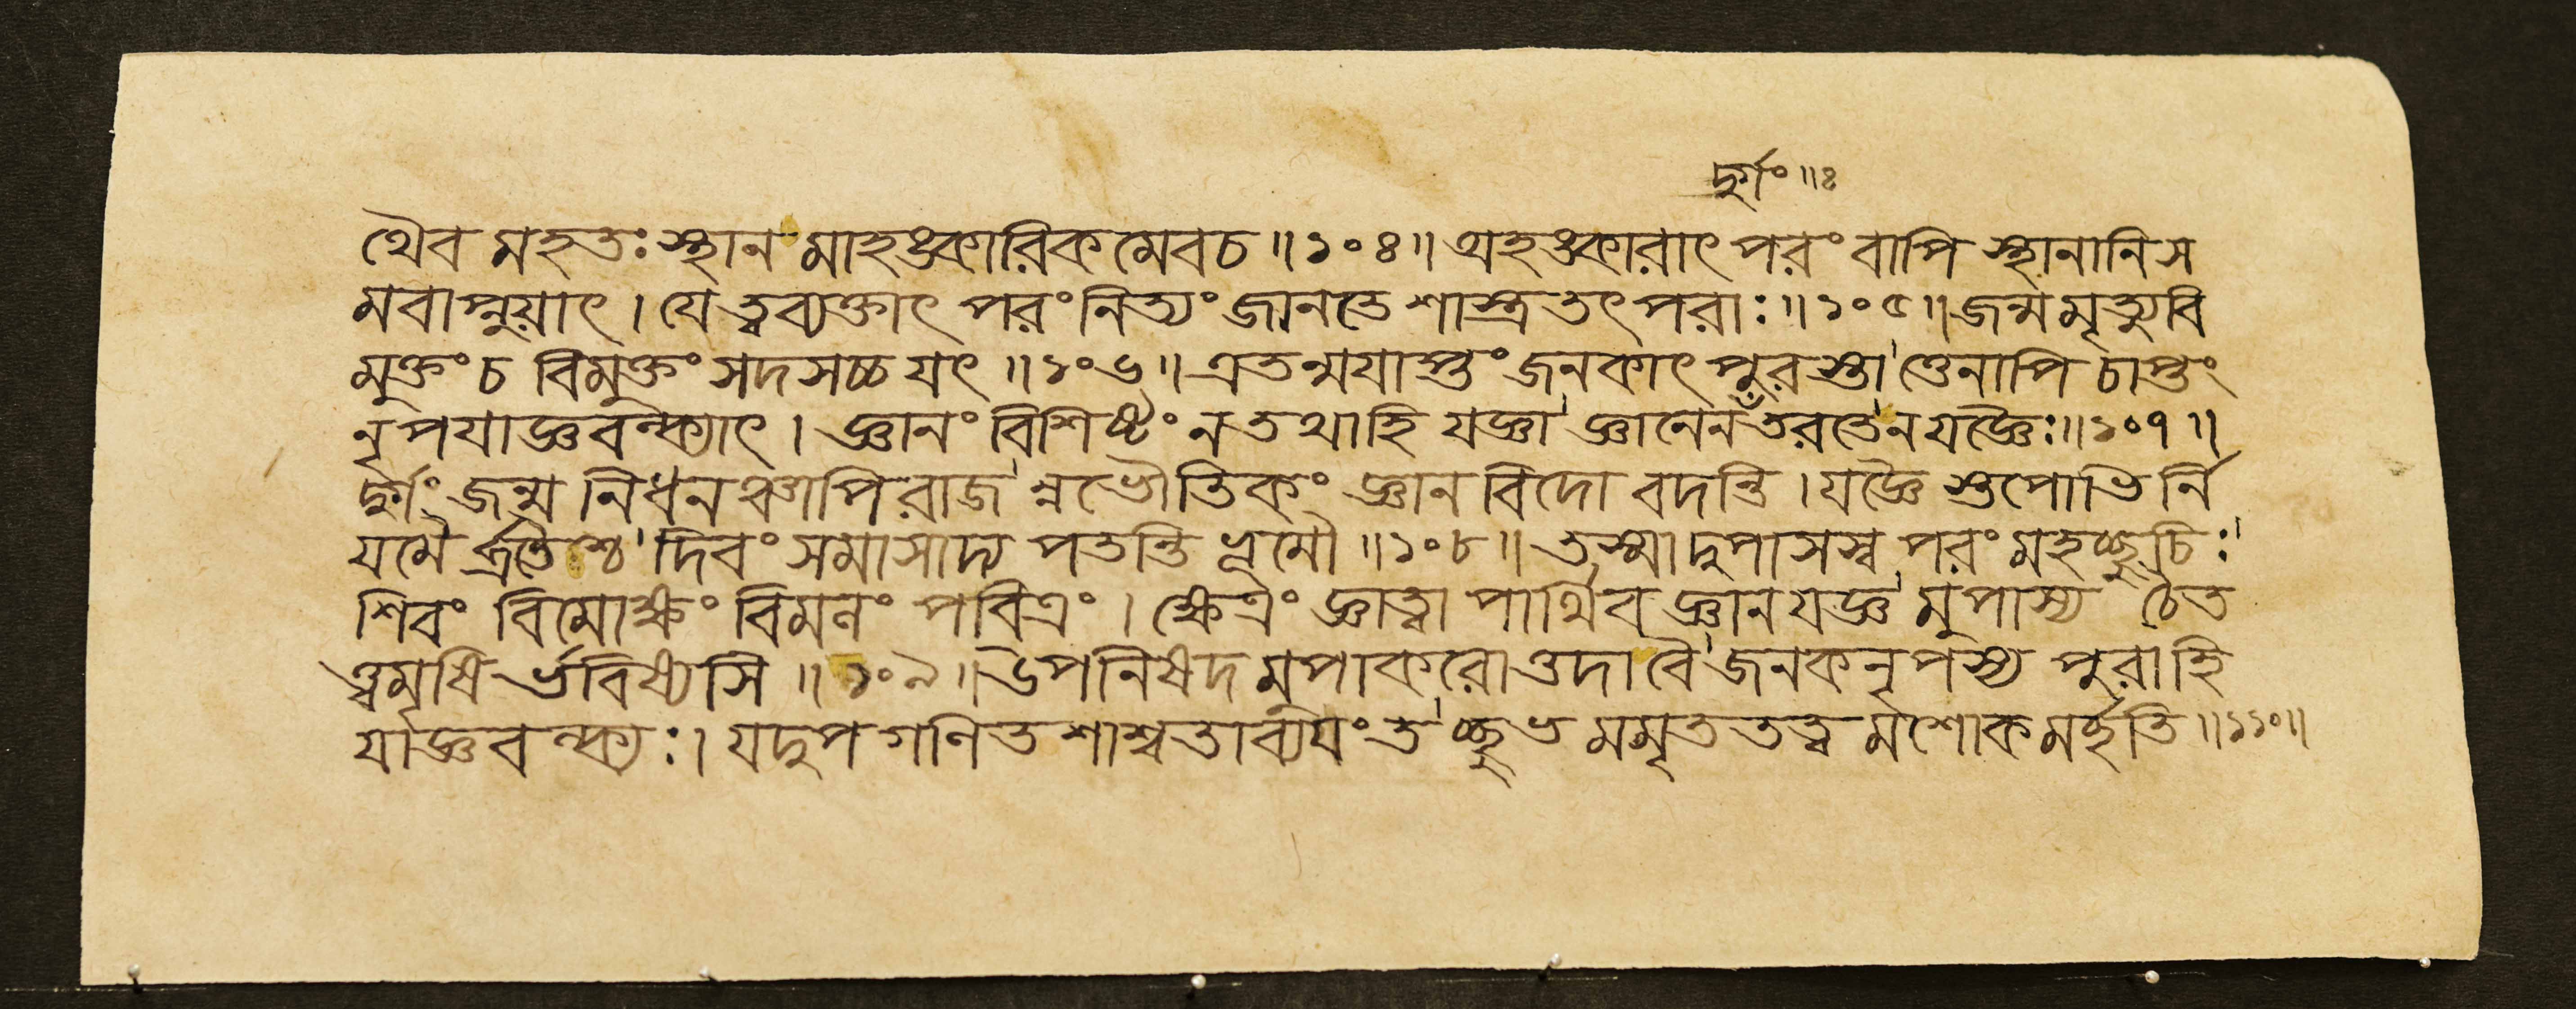 দুর্গং ॥ঃ
থৈব মহতঃ স্থান মাহঙ্কারিকমেবচ ॥ ১০৪ ॥ অহঙ্কারাৎ পরং বাপি স্থানানি স
মবাপ্নুয়াৎ । যে ত্বব্যক্তাৎ পরং নিত্যং জানতে শাস্ত্রতৎপরাঃ ॥ ১০৫ ॥ জন্মমৃত্যুবি
মুক্তং চ বিমুক্তং সদসচ্চ যৎ ॥ ১০৬ ॥ এতন্ময়াপ্তং জনকাৎ পুরস্তা ত্তেনাপি চাপ্তং
নৃপযাজ্ঞবল্ক্যাৎ । জ্ঞানং বিশিষ্টং ন তথাহি যজ্ঞা জ্ঞানেন তরতে ন যজ্ঞৈঃ ॥ ১০৭ ॥
দুর্গং জন্ম নিধনঞ্চাপি রাজ ন্নভৌতিকং জ্ঞানবিদো বদন্তি । যজ্ঞৈ স্তপোভির্নি
যমৈ র্ব্রতৈশ্চ দিবং সমাসাদ্য পতন্তি ভূমৌ ॥ ১০৮ ॥ তস্মাদুপাসস্ব পরং মহচ্ছুচিঃ
শিবং বিমোক্ষং বিমলং পবিত্রং । ক্ষেত্রং জ্ঞাত্বা পার্থিব জ্ঞানযজ্ঞ মুপাস্য বৈত
ত্ত্বমৃষি র্ভবিষ্যসি ॥ ১০৯ ॥ উপনিষদমুপাকরোত্তদা বৈ জনকনৃপস্য পুরাহি
যাজ্ঞবল্ক্যঃ । যদুপগণিতশাশ্বতাব্যয়ং ত চ্ছুভমমৃততত্ত্বমশোকমর্হতি ॥ ১১০ ॥